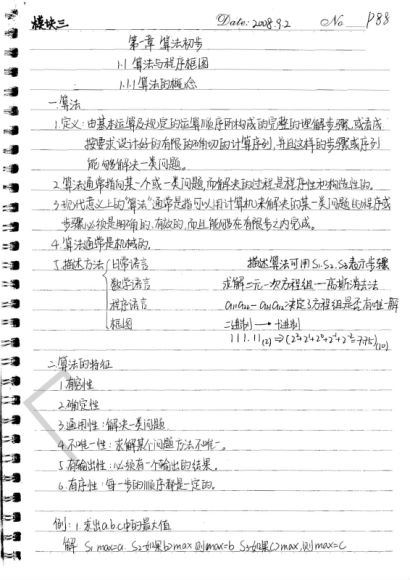 模块三 Date: 2008.9.2 No P88
第一章 算法初步
1.1 算法与程序框图
1.1.1 算法的概念
一.算法
1.定义:由基本运算及规定的运算顺序所构成的完整的解题步骤,或者成
按要求设计好的有限的确切的计算序列,并且这样的步骤或序列
能够解决一类问题。
2.算法通常指向某一个或一类问题,而解决的过程是程序性和构造性的。
3.现代意义上的“算法”通常是指可以用计算机来解决的某一类问题的程序或
步骤,必须是明确的,有效的,而且能够在有限步之内完成。
4.算法通常是机械的.
5.描述方法 日常语言 描述算法可用S₁.S₂.S₃表示步骤
数学语言 求解二元一次方程组—高斯消去法
程序语言 a₁₁a₂₂-a₂₁a₁₂:决定了方程组是否有唯一解
框图 二进制→十进制
111.11₍₂₎⇒(2²+2¹+2⁰+2⁻¹+2⁻²=7.75)₍₁₀₎
二.算法的特征
1.有穷性
2.确定性
3.通用性:解决一类问题
4.不唯一性:求解某个问题方法不唯一。
5.有输出性:必须有一个输出的结果。
6.有序性:每一步的顺序都是一定的。
例:1.求出a.b.c中的最大值
解 S₁ max=a S₂ 如果b>max,则max=b S₃ 如果c>max,则max=c